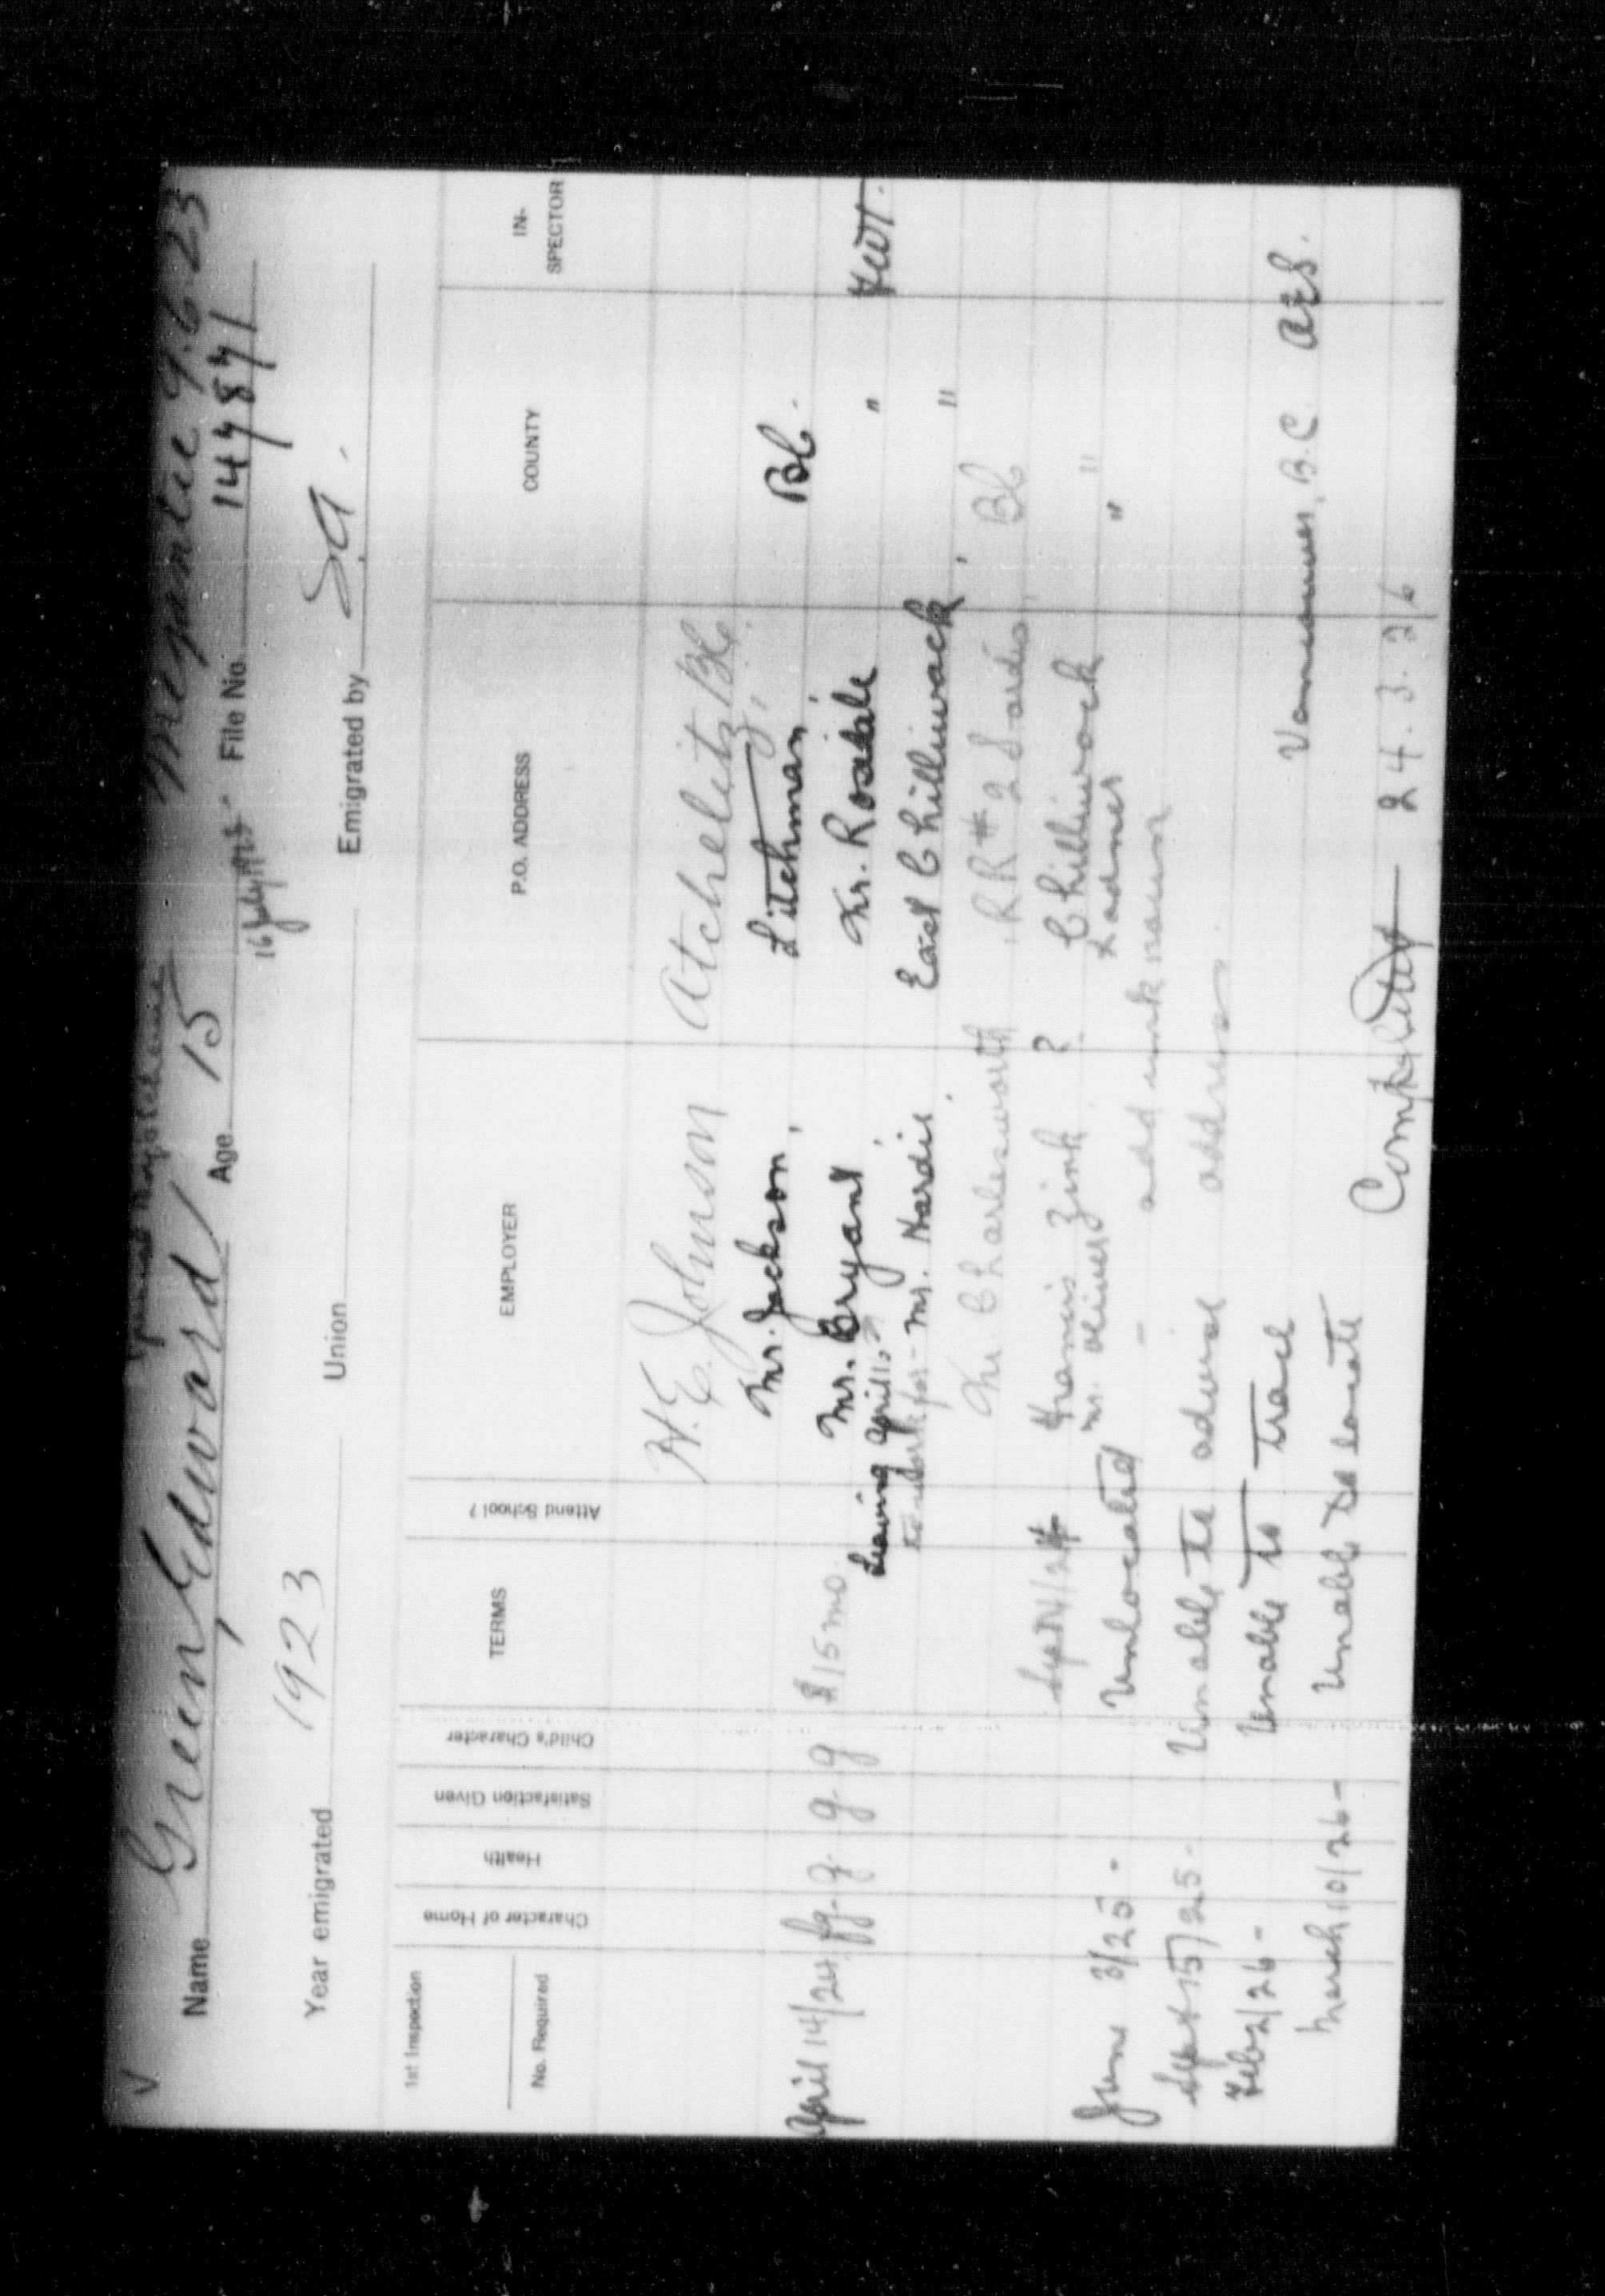 V
Name Green, Edward Age 15 Megantic 9.6.23
File No. 147871
Year emigrated 1923 Union Emigrated by S.A.
1st Inspection
No. Required
Character of Home
Health
Satisfaction Given
Child's Character
TERMS
Attend School?
EMPLOYER
P.O. ADDRESS
COUNTY
IN-
SPECTOR
H. E. Johnson Atchelitz, B.C.
Mr. Jackson, Litchman, BC.
April 14/24 fg. g. g. g $15 mo Mr. Bryant, Nr. Rosedale "
Leaving April 15
to work for - Mr. Hardie, East Chilliwack, "
Mr. Charlesworth RR # 2 Sardis, BC
Sept 4/24 Francis Zink ? Chilliwack "
June 3/25 - Unlocated Mr. Oliver Ladner "
- add unknown
Sept 15/25 - Unable to advise address.
Feb 2/26 - Unable to trace Vancouver, B.C.
March 10/26 - Unable to locate
Completed 24.3.26